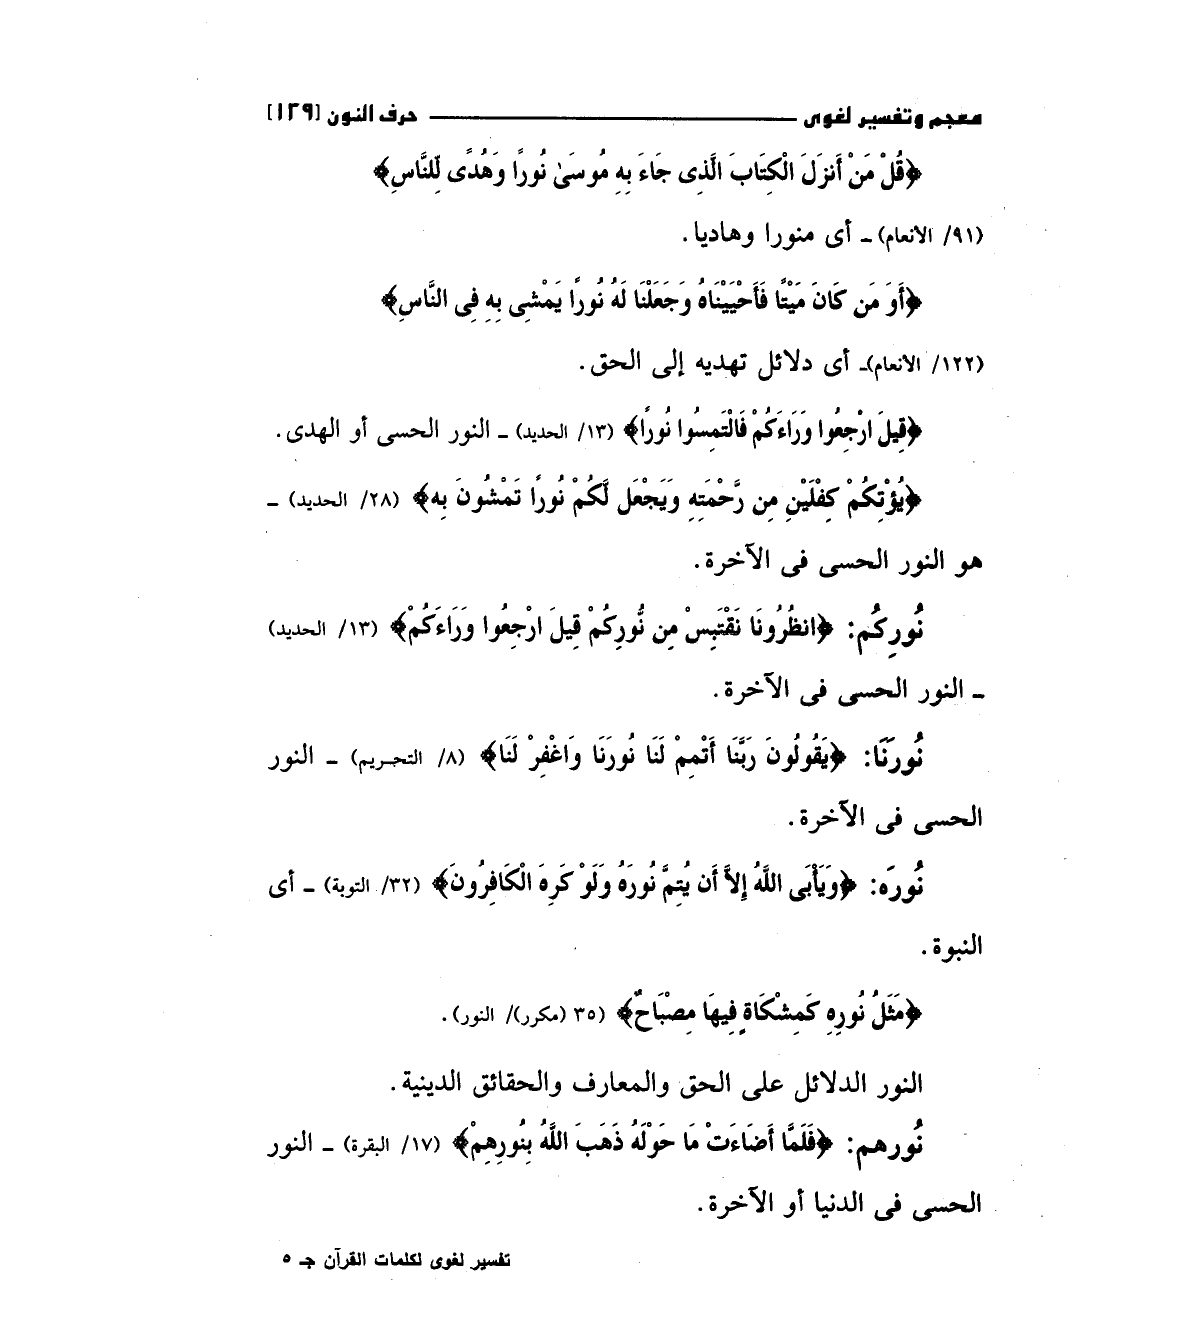 معجم وتفسير لغوى ـــــــــ حرف النون [١٢٩]
﴿قُلْ مَنْ أَنزَلَ الْكِتَابَ الَّذِى جَاءَ بِهِ مُوسَىٰ نُورًا وَهُدًى لِّلنَّاسِ﴾
(٩١/ الانعام) ـ أى منورا وهاديا.
﴿أَوَ مَن كَانَ مَيْتًا فَأَحْيَيْنَاهُ وَجَعَلْنَا لَهُ نُورًا يَمْشِى بِهِ فِى النَّاسِ﴾
(١٢٢/ الانعام)ـ أى دلائل تهديه إلى الحق.
﴿قِيلَ ارْجِعُوا وَرَاءَكُمْ فَالْتَمِسُوا نُورًا﴾ (١٣/ الحديد) ـ النور الحسى أو الهدى.
﴿يُؤْتِكُمْ كِفْلَيْنِ مِن رَّحْمَتِهِ وَيَجْعَل لَّكُمْ نُورًا تَمْشُونَ بِهِ﴾ (٢٨/ الحديد) ـ
هو النور الحسى فى الآخرة.
نُورِكُم: ﴿انظُرُونَا نَقْتَبِسْ مِن نُّورِكُمْ قِيلَ ارْجِعُوا وَرَاءَكُمْ﴾ (١٣/ الحديد)
ـ النور الحسى فى الآخرة.
نُورَنَا: ﴿يَقُولُونَ رَبَّنَا أَتْمِمْ لَنَا نُورَنَا وَاغْفِرْ لَنَا﴾ (٨/ التحريم) ـ النور
الحسى فى الآخرة.
نُورَه: ﴿وَيَأْبَى اللَّهُ إِلاَّ أَن يُتِمَّ نُورَهُ وَلَوْ كَرِهَ الْكَافِرُونَ﴾ (٣٢/ التوبة) ـ أى
النبوة.
﴿مَثَلُ نُورِهِ كَمِشْكَاةٍ فِيهَا مِصْبَاحٌ﴾ (٣٥ (مكرر)/ النور).
النور الدلائل على الحق والمعارف والحقائق الدينية.
نُورهم: ﴿فَلَمَّا أَضَاءَتْ مَا حَوْلَهُ ذَهَبَ اللَّهُ بِنُورِهِمْ﴾ (١٧/ البقرة) ـ النور
الحسى فى الدنيا أو الآخرة.
تفسير لغوى لكلمات القرآن جـ ٥